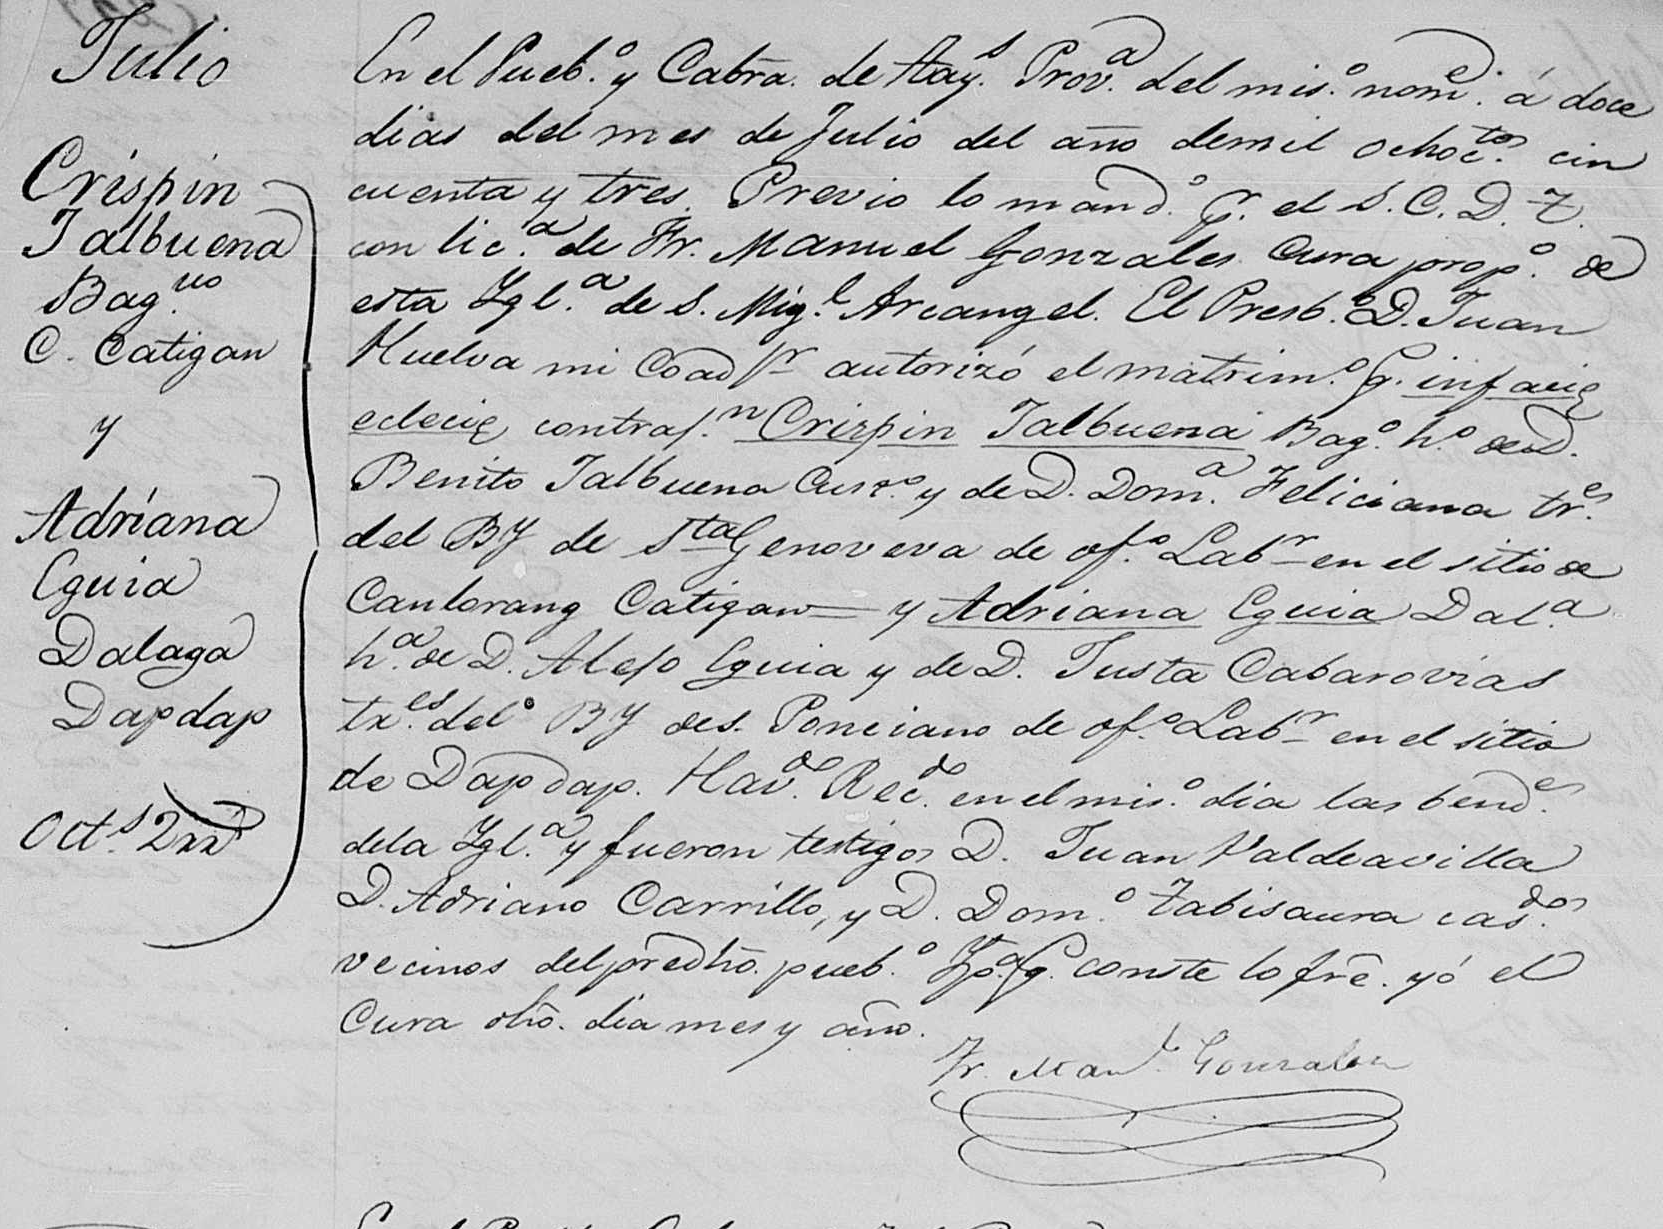 Julio
Crispin
Talbuena
Bag.uo
C. Catigan
y
Adriana
Eguia
Dalaga
Dapdap
Oct.s 2
En el Pueb.o y Cabra. de Albay. Prov.a del mis.o nom.e á doce
dias del mes de Julio del año de mil ochoc.tos cin
cuenta y tres. Previo lo mand.o p.r el S. C. D. Z.
con lic.a de Fr. Manuel Gonzales Cura prop.o de
esta Ygl.a de S. Mig.l Arcangel. El Presb.o D. Juan
Huelva mi Coad.r autorizó el matrim.o q. infacie
eclecie contraj.n Crispin Talbuena Bag.o h.o de D.
Benito Talbuena y de D. Dom.a Feliciana tr.es
del BY de Sta Genoveva de of.o Lab.r en el sitio de
Canlorang Catigan y Adriana Eguia Dal.a
h.a de D. Alejo Eguia y de D. Justa Cabarovias
tr.es del BY de S. Ponciano de of.o Lab.r en el sitio
de Dapdap. Hav.do Rec.do en el mis.o dia las bend.es
de la Ygl.a y fueron testigos D. Juan Valdeavilla
D. Adriano Carrillo, y D. Dom.o Zabisaura cas.dos
vecinos del predho. pueb.o Y p.a q. conste lo frê. yó el
Cura dho. dia mes y año.
Fr. Man.l Gonzalez